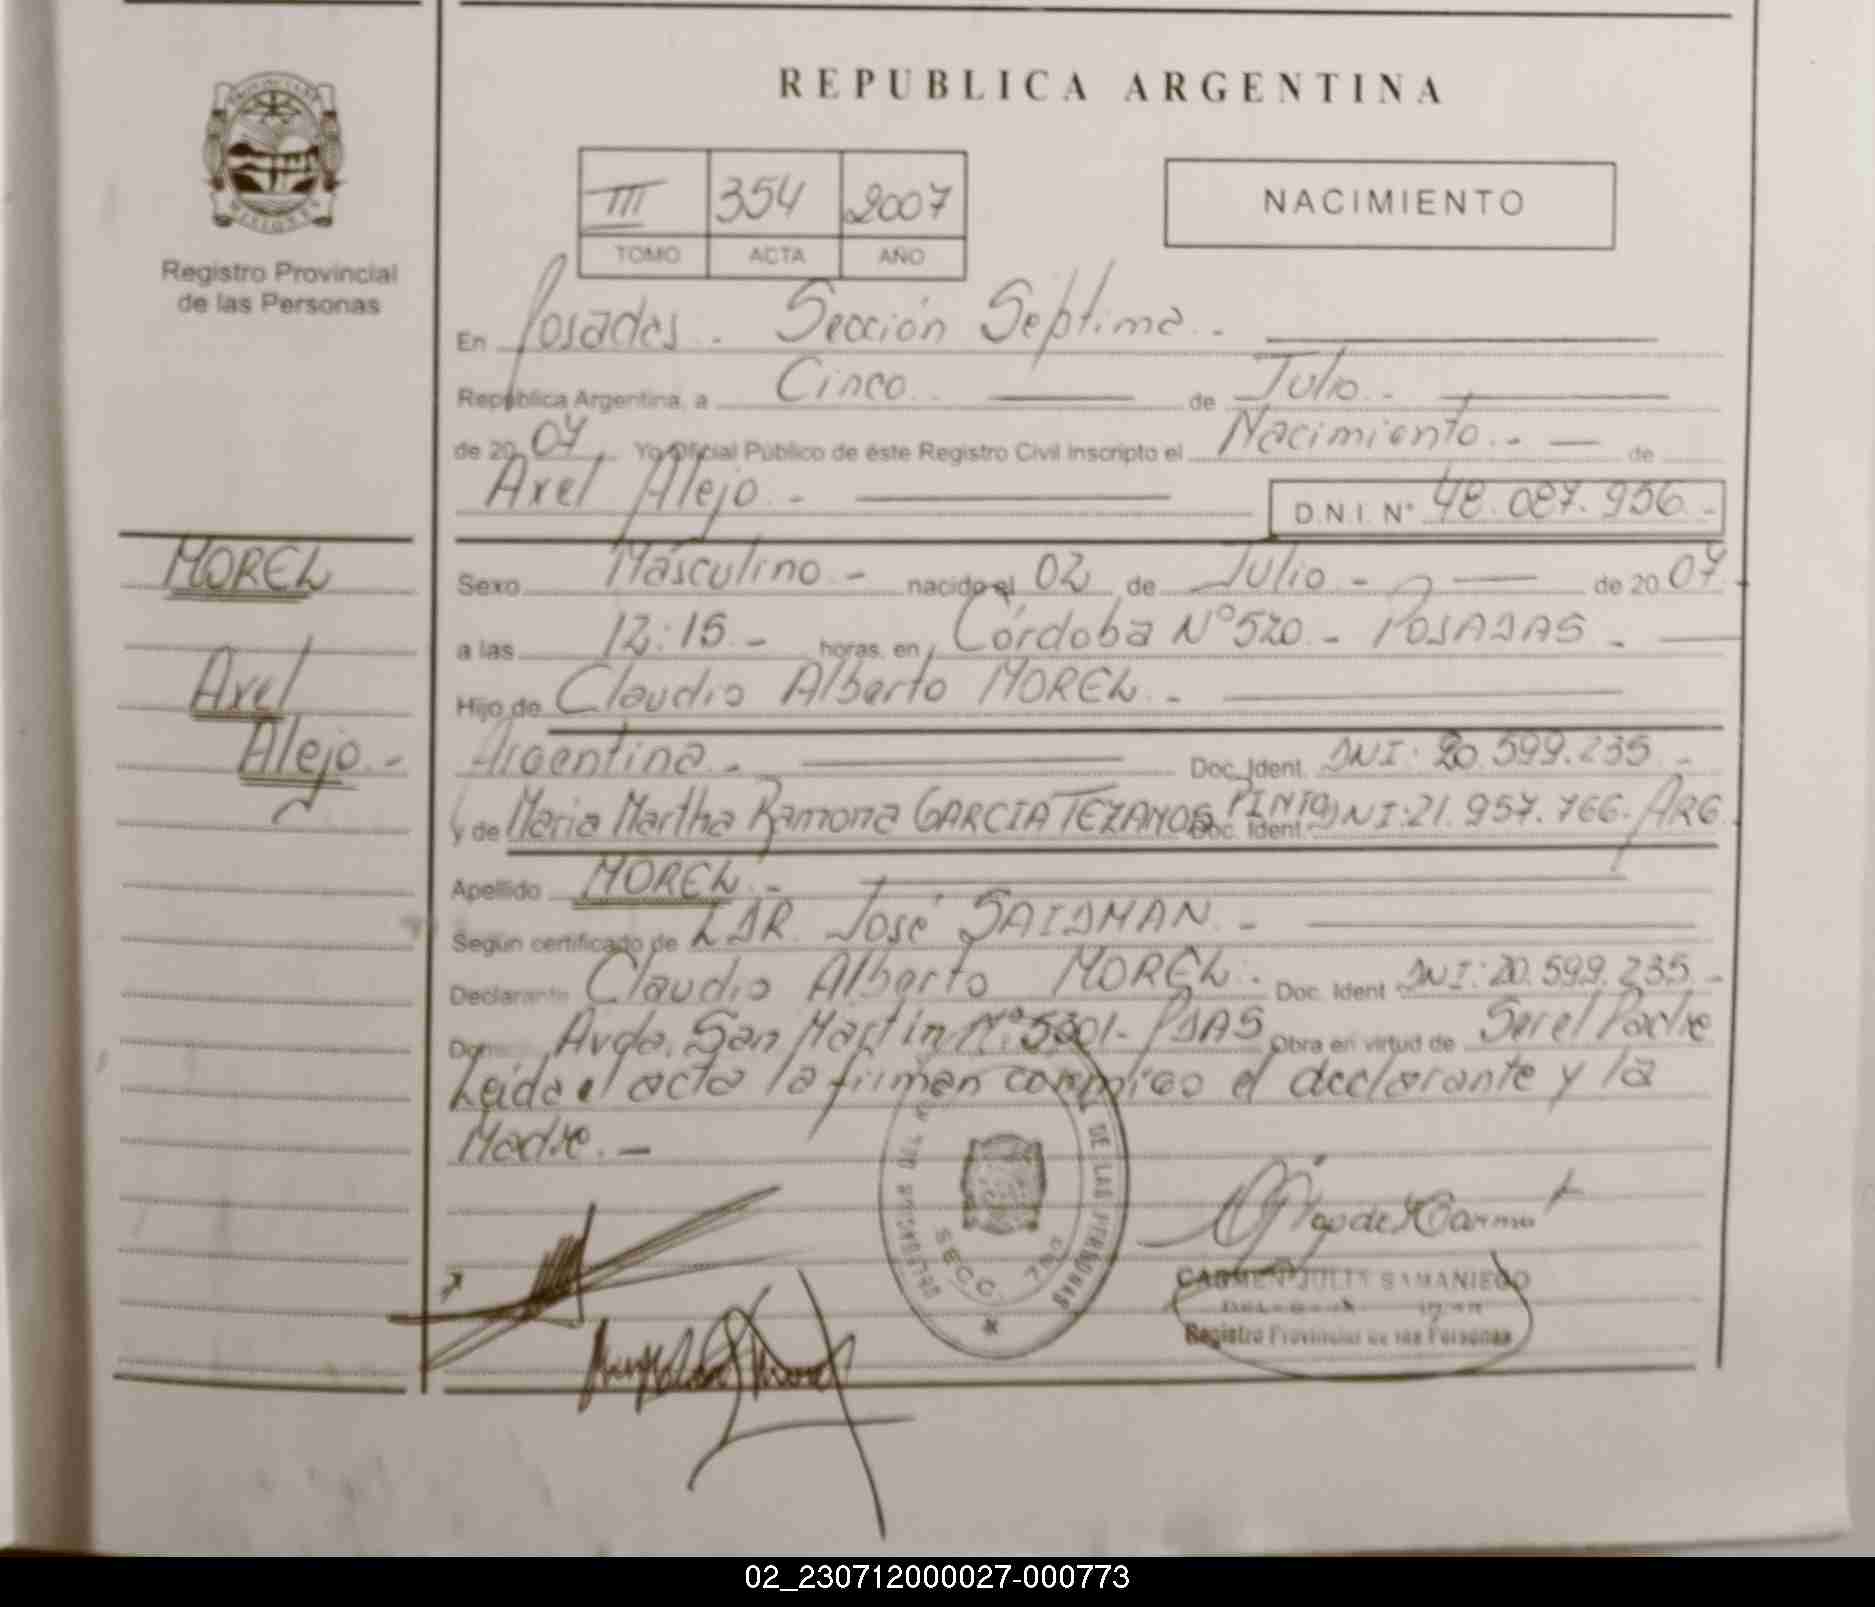 REPUBLICA ARGENTINA
III 354 2007
TOMO ACTA AÑO
NACIMIENTO
Registro Provincial
de las Personas
En Posadas. Sección Septima.-
República Argentina, a Cinco.- de Julio.-
de 2007 Yo Oficial Público de éste Registro Civil Inscripto el Nacimiento.- de
Axel Alejo.- D.N.I. N° 48.087.956.-
MOREL
Axel
Alejo.-
Sexo Masculino.- nacido el 02 de Julio.- de 2007
a las 12:15.- horas, en Córdoba N°520.- POSADAS.-
Hijo de Claudio Alberto MOREL.-
Argentina.- Doc. Ident. DNI: 20.599.235.-
y de Maria Martha Ramona GARCIA TEZANOS PINTO Doc. Ident. DNI:21.957.766.- ARG.
Apellido MOREL.-
Según certificado de LDR. José SAIDMAN.-
Declarante Claudio Alberto MOREL.- Doc. Ident DNI: 20.599.235.-
Avda. San Martín N°5301- PDAS Obra en virtud de Ser el Padre
Leida el acta la firman conmigo el declarante y la
Madre.-
DE LAS PERSONAS
SECC. 7
CARMEN JULIA SAMANIEGO
Registro Provincial de las Personas
02_230712000027-000773